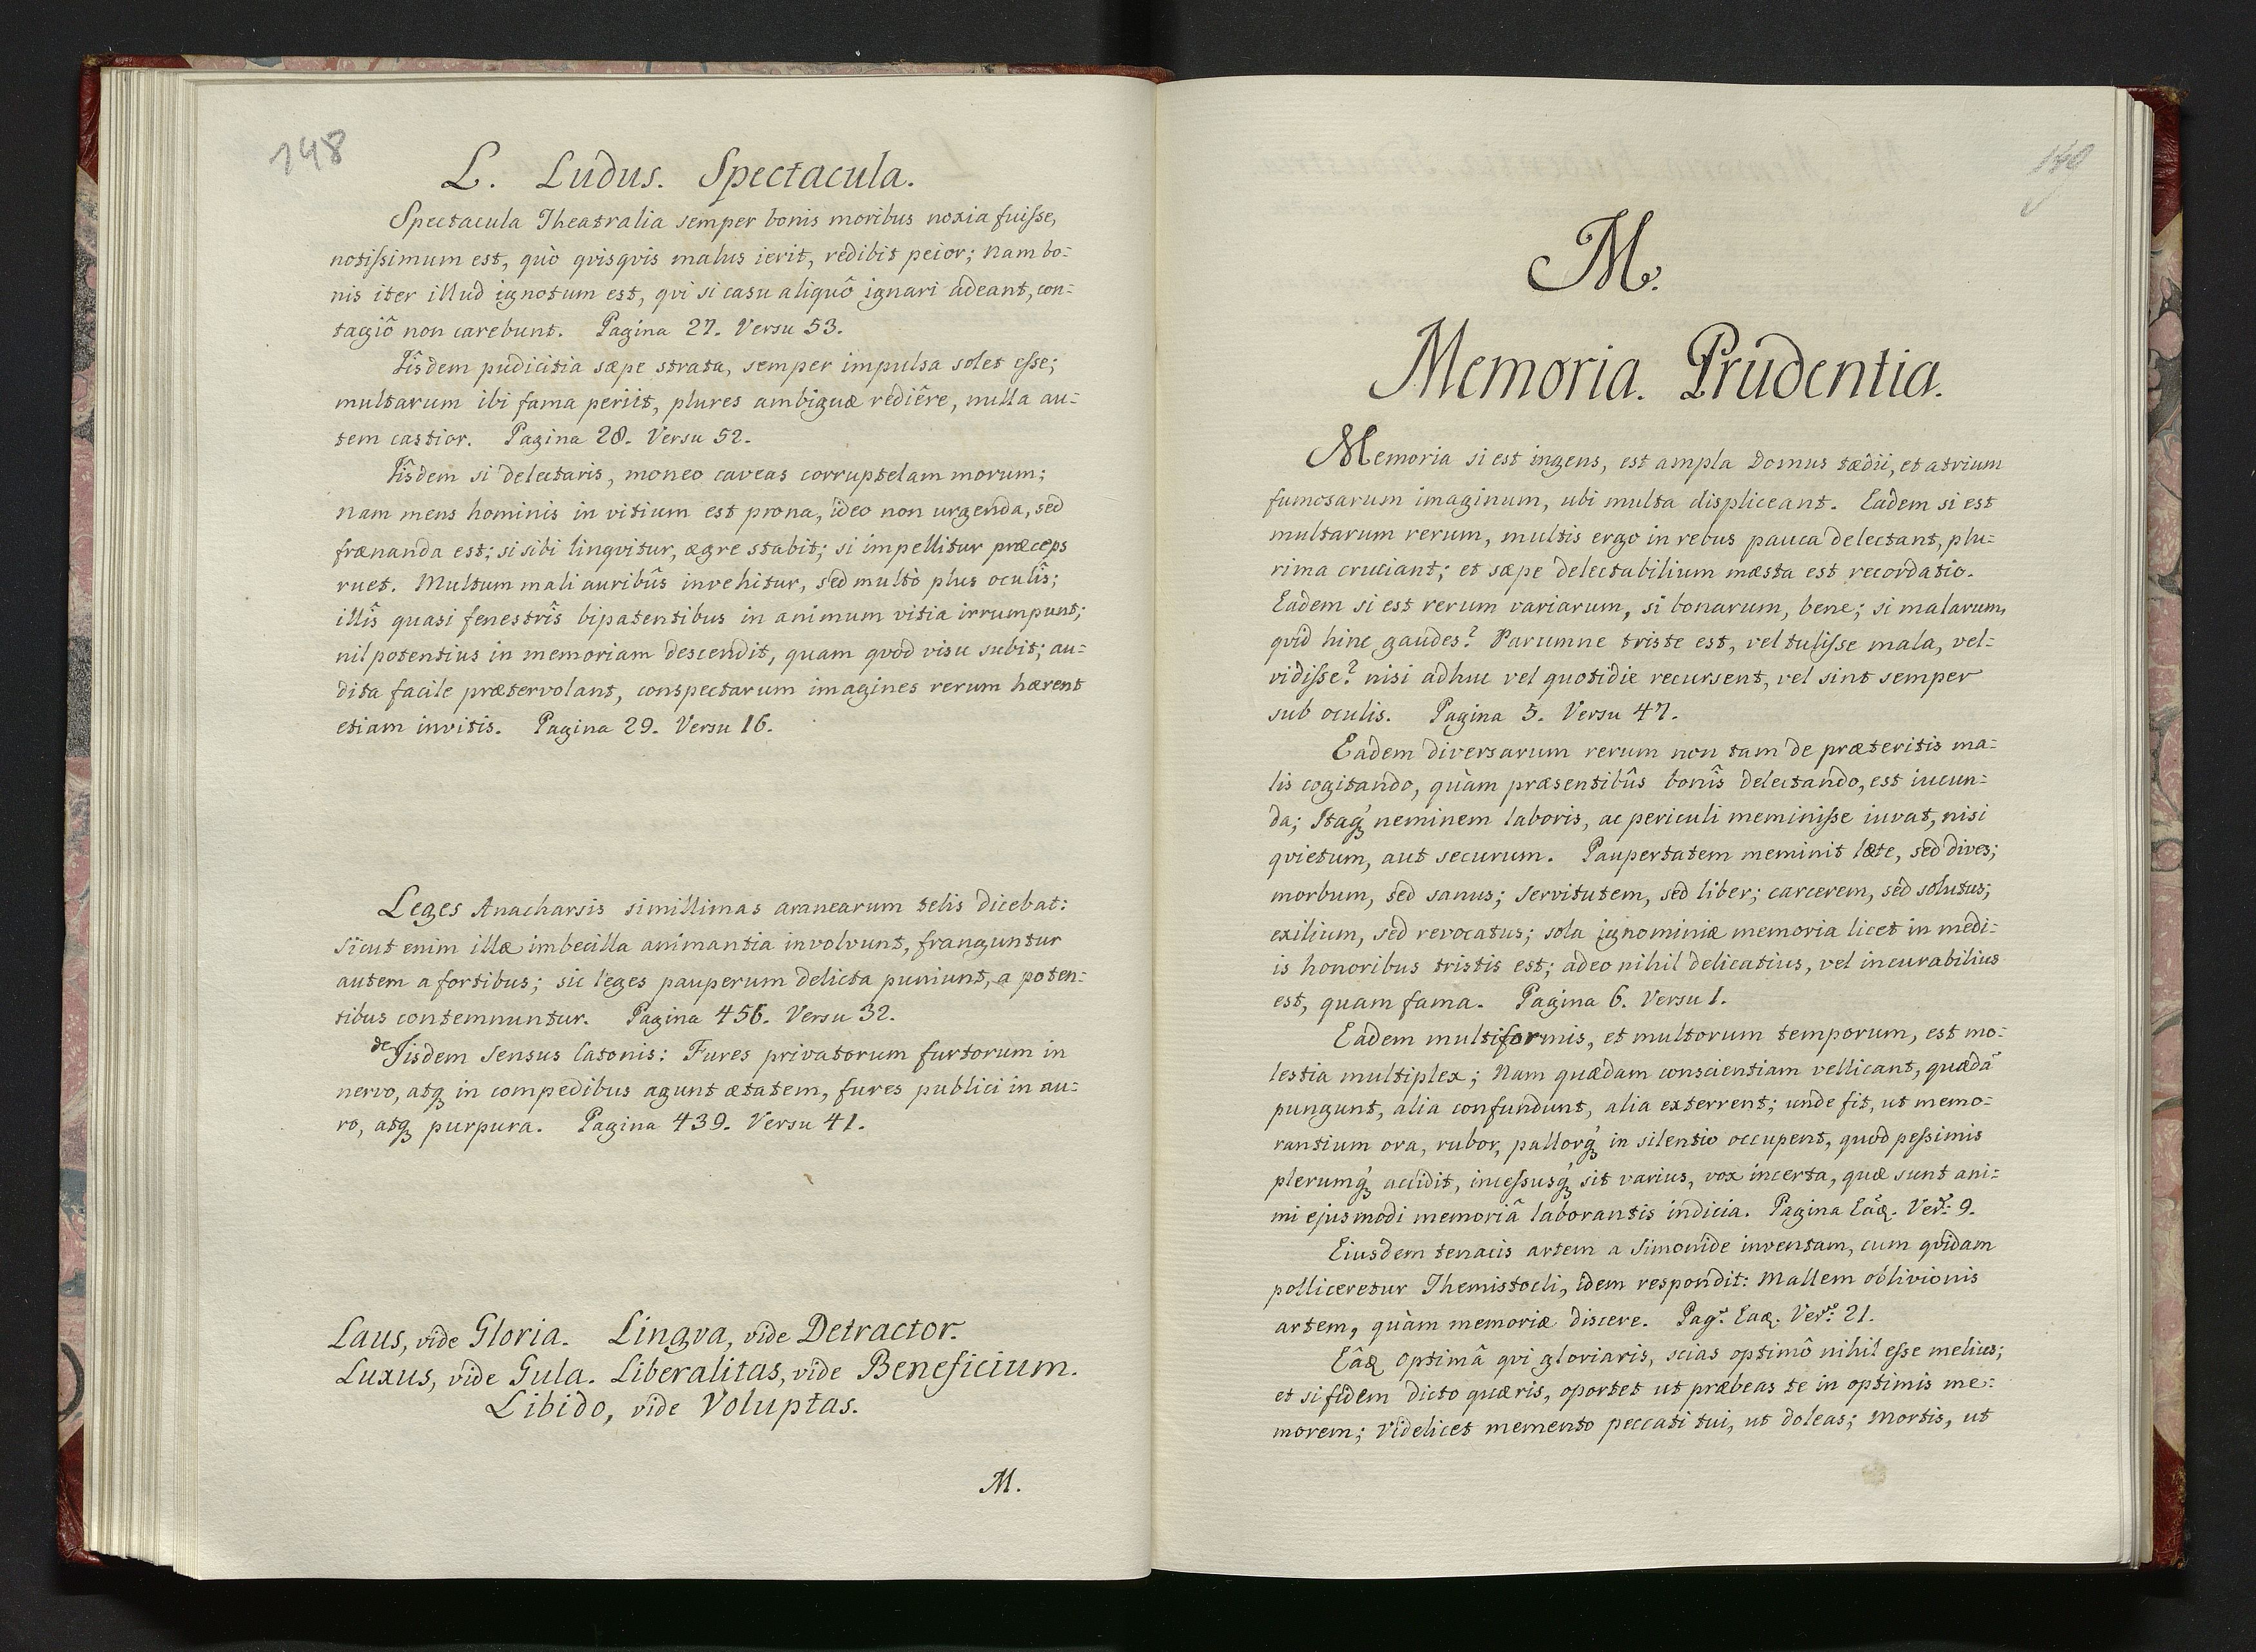 148
L. Ludus. Spectacula.
Spectacula Theatralia semper bonis moribus noxia fuiſse,
notiſsimum est, quò qvisqvis malus ierit, redibit peior; Nam bo:
nis iter illud ignotum est, qvi si casu aliquô ignari adeant, con:
tagiô non carebunt. Pagina 27. Versu 53.
Iîsdem pudicitia sæpe strata, semper impulsa solet eſse;
multarum ibi fama periit, plures ambiguæ rediêre, nulla au:
tem castior. Pagina 28. Versu 52.
Iîsdem si delectaris, moneo caveas corruptelam morum;
Nam mens hominis in vitium est prona, ideo non urgenda, sed
frænanda est; si sibi linqvitur, ægre stabit; si impellitur præceps
ruet. Multum mali auribûs invehitur, sed multò plus oculîs;
illîs quasi fenestrîs bipatentibus in animum vitia irrumpunt;
nil potentius in memoriam descendit, quam qvod visu subit; au:
dita facile prætervolant, conspectarum imagines rerum hærent
etiam invitis. Pagina 29. Versu 16.
Leges Anacharsis simillimas aranearum telis dicebat:
Sicut enim illæ imbecilla animantia involvunt, franguntur
autem a fortibus; sic leges pauperum delicta puniunt, a poten:
tibus contemnuntur. Pagina 456. Versu 32.
de Iisdem Sensus Catonis: Fures privatorum furtorum in
nervo, atq̢ in compedibus agunt ætatem, fures publici in au:
ro, atq̢ purpura. Pagina 439. Versu 41.
Laus, vide Gloria. Lingva, vide Detractor.
Luxus, vide Gula. Liberalitas, vide Beneficium.
Libido, vide Voluptas.
M.
149
M.
Memoria. Prudentia.
Memoria si est ingens, est ampla Domus tædii, et atrium
fumosarum imaginum, ubi multa displiceant. Eadem si est
multarum rerum, multis ergo in rebus pauca delectant, plu:
rima cruciant; et sæpe delectabilium mæsta est recordatio.
Eadem si est rerum variarum, si bonarum, bene; si malarum,
qvid hinc gaudes? Parumne triste est, vel tuliſse mala, vel:
vidiſse? nisi adhuc vel quotidie recursent, vel sint semper
sub oculis. Pagina 5. Versu 47.
Eadem diversarum rerum non tam de præteritis ma:
lis cogitando, quàm præsentibûs bonîs delectando, est iucun:
da; Itaq̢́ neminem laboris, ac periculi meminiſse iuvat, nisi
qvietum, aut securum. Paupertatem meminit læte, sed dives;
morbum, sed sanus; Servitutem, sed liber; carcerem, sed solutus;
exilium, sed revocatus; sola ignominiæ memoria licet in medi:
is honoribus tristis est; adeo nihil delicatius, vel incurabilius
est, quam fama. Pagina 6. Versu 1.
Eadem multiformis, et multorum temporum, est mo:
lestia multiplex; Nam quædam conscientiam vellicant, quædã
pungunt, alia confundunt, alia exterrent; unde fit, ut memo:
rantium ora, rubor, pallorq̢́ in silentio occupent, quod peſsimis
plerumq̢́ accidit, inceſsusq̢́ sit varius, vox incerta, quæ sunt ani:
mi ejusmodi memoriâ laborantis indicia. Pagina Eâꝗ. Versu: 9.
Eiusdem tenacis artem a Simonide inventam, cum qvidam
polliceretur Themistocli, idem respondit: Mallem oblivionis
artem, quàm memoriæ discere. Pag: Eaꝗ. Versu: 21.
Eâꝗ optimâ qvi gloriaris, scias optimô nihil eſse melius;
et si fidem dicto quæris, oportet ut præbeas te in optimis me:
morem; Videlicet memento peccati tui, ut doleas; Mortis, ut